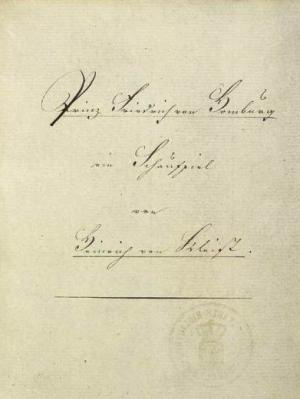 Prinz Friedrich von Homburg
ein Schauspiel
von
Heinrich von Kleist.